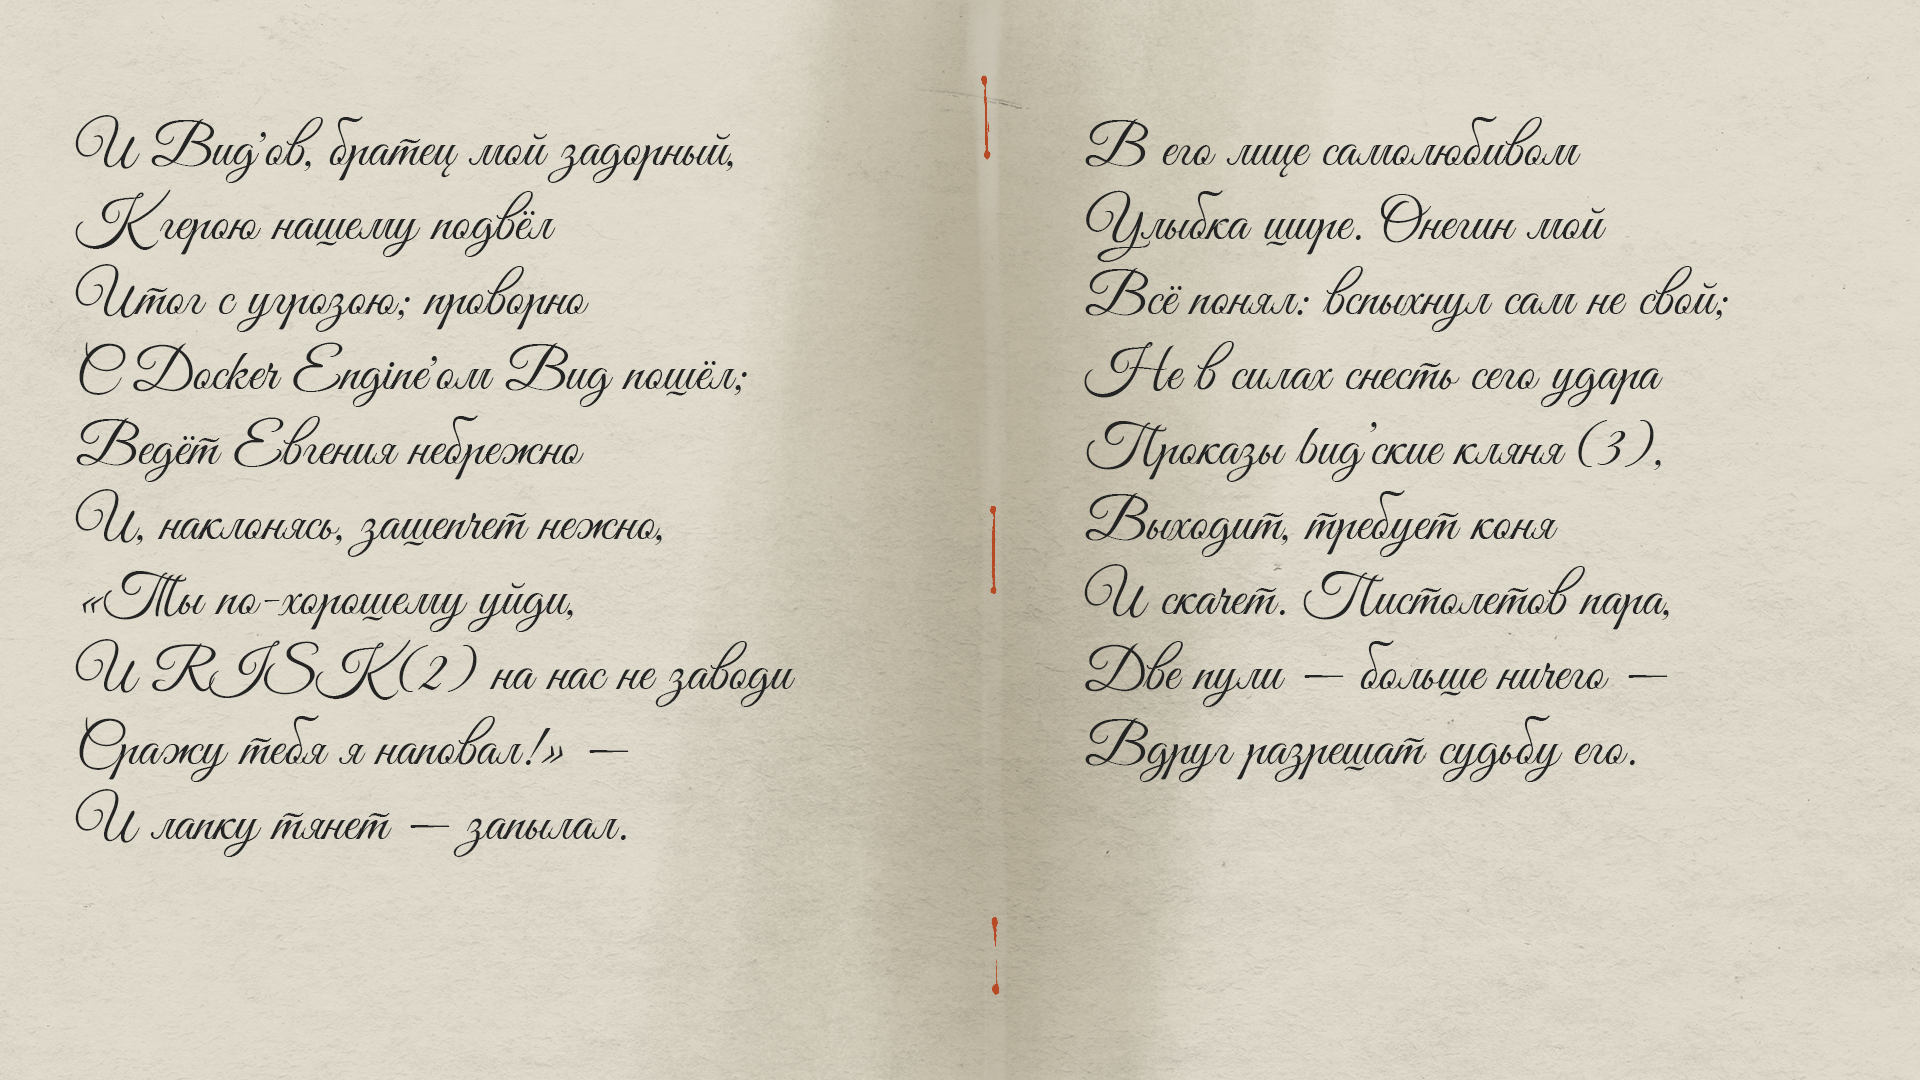 И Bug'ов, братец мой задорный,
К герою нашему подвёл
Итог с угрозою; проворно
С Docker Engine'ом Bug пошёл;
Ведёт Евгения небрежно
И, наклонясь, зашепчет нежно,
«Ты по-хорошему уйди,
И RISK(2) на нас не заводи
Сражу тебя я наповал!» —
И лапку тянет — запылал.
В его лице самолюбивом
Улыбка шире. Онегин мой
Всё понял: вспыхнул сам не свой;
Не в силах снесть сего удара
Проказы bug'ские кляня (3),
Выходит, требует коня
И скачет. Пистолетов пара,
Две пули — больше ничего —
Вдруг разрешат судьбу его.